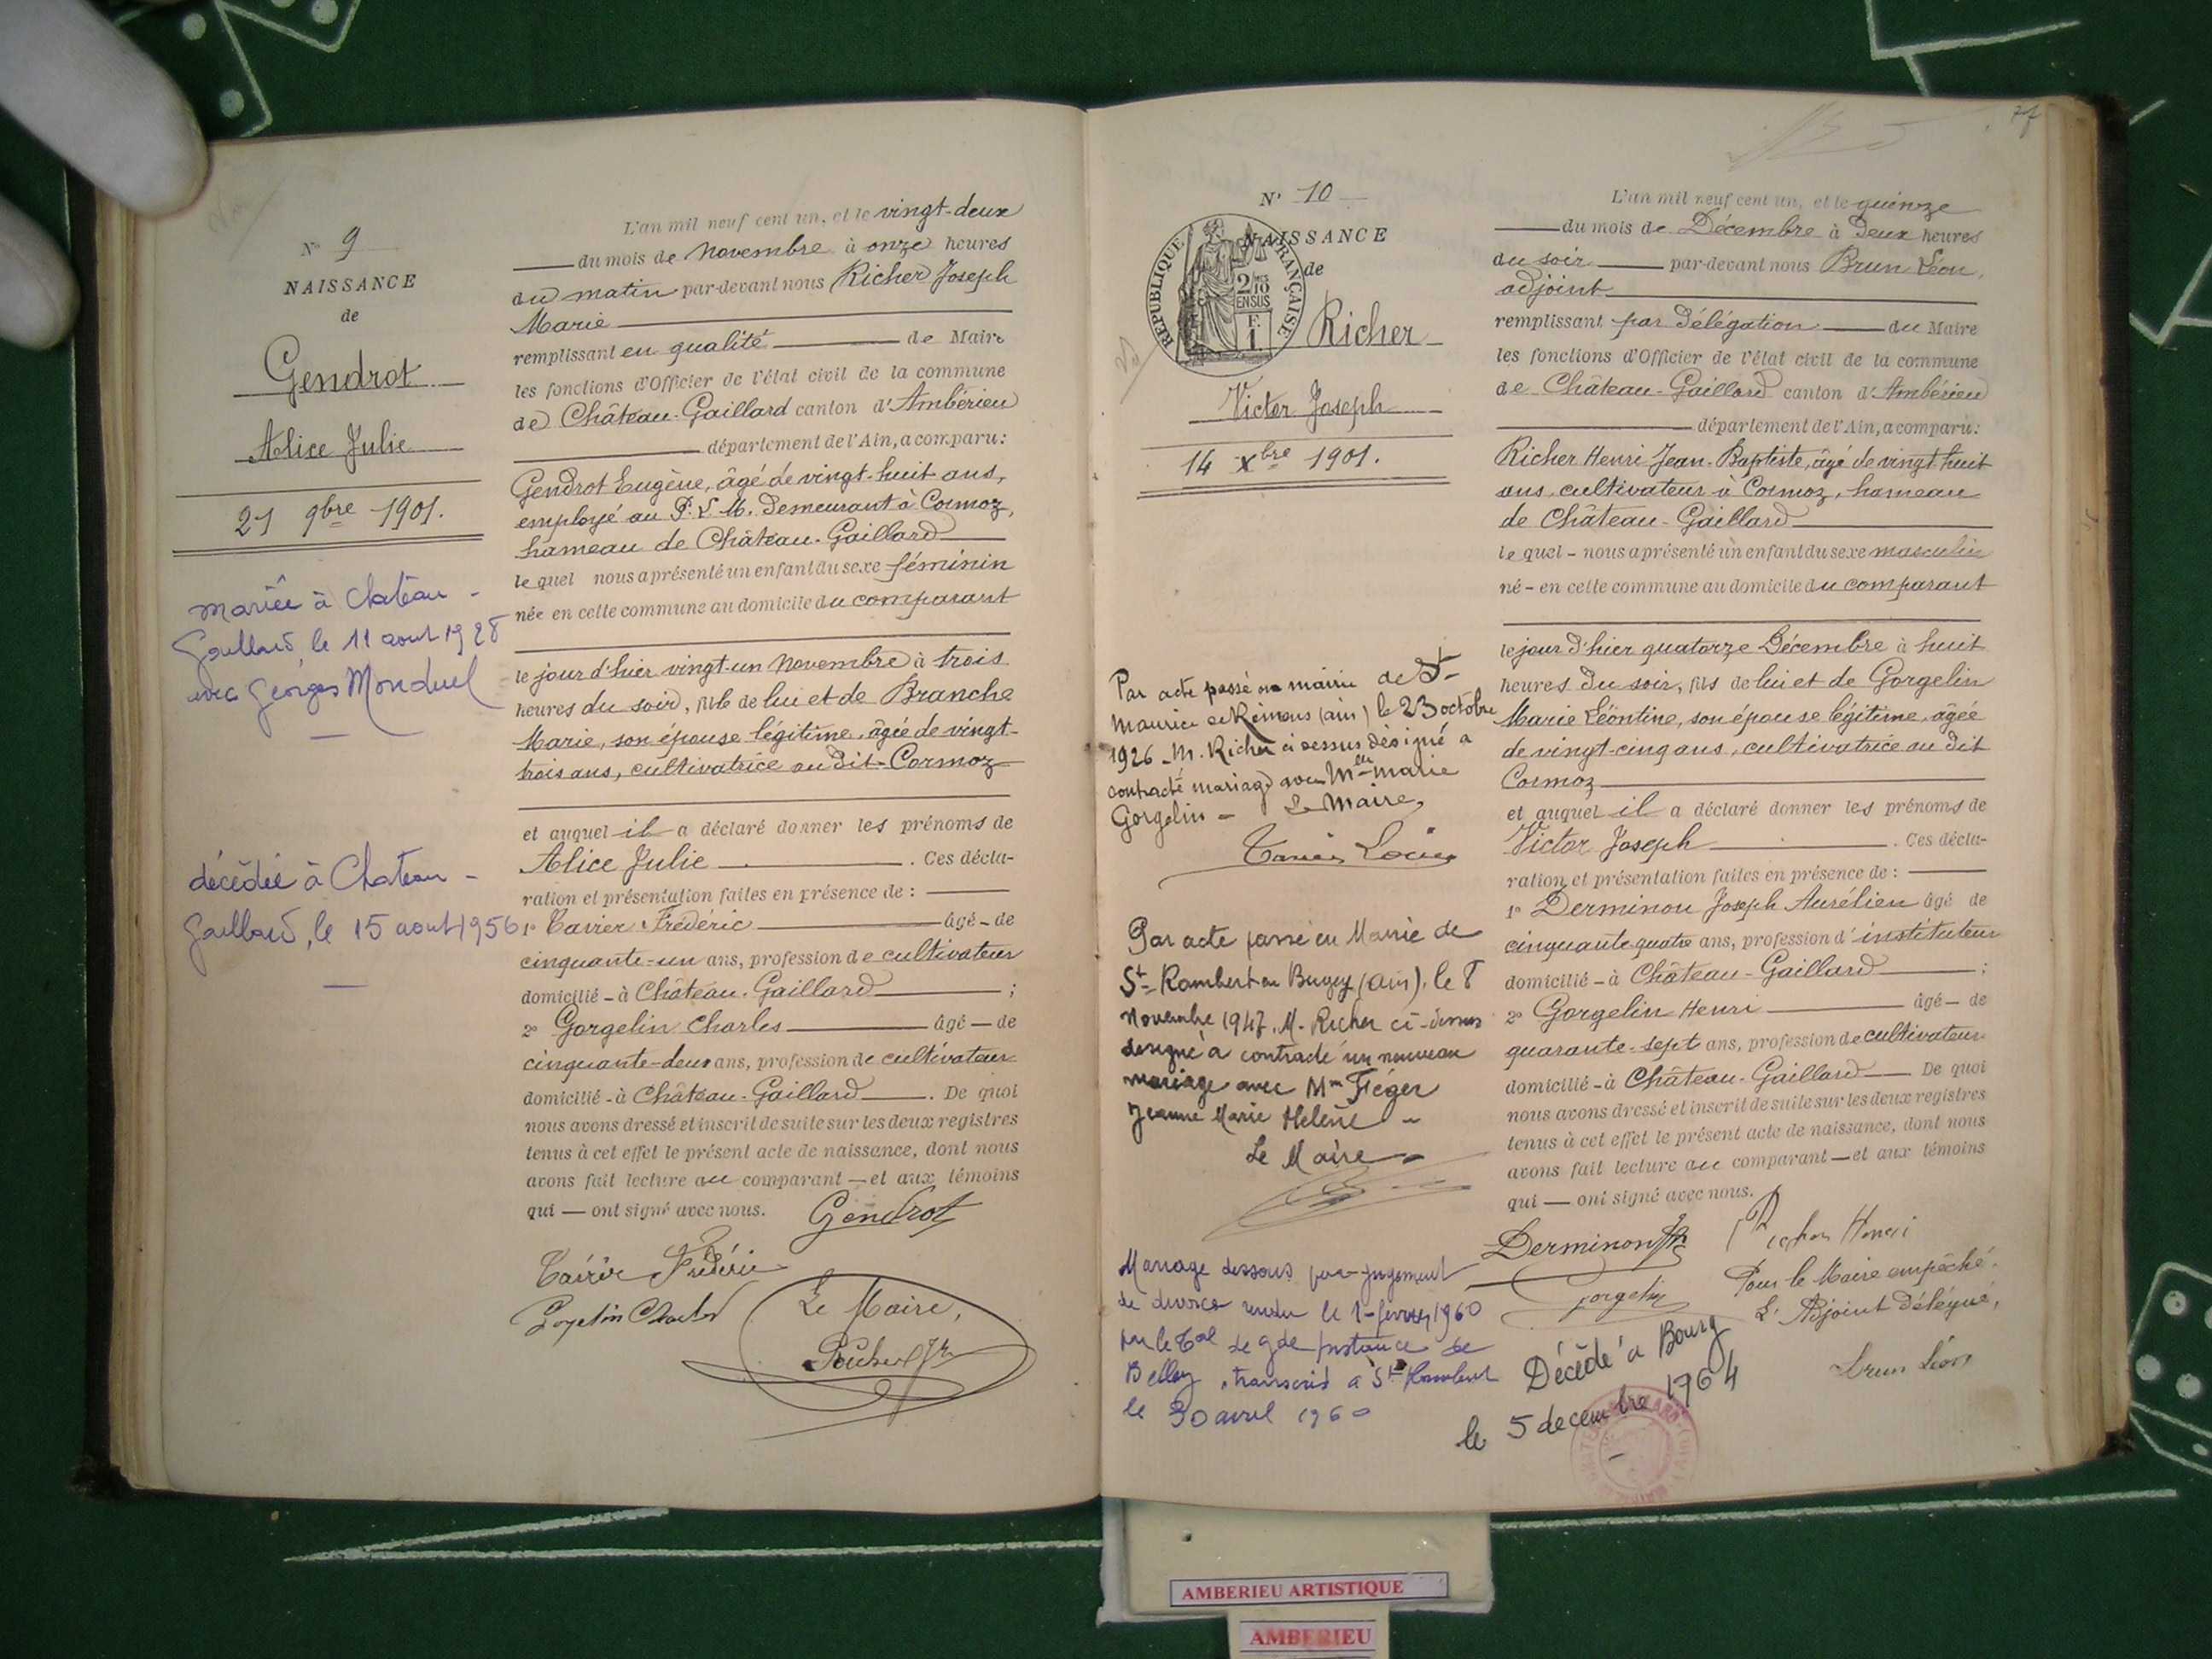 N° 9
NAISSANCE
de
Gendrot
Alice Julie
21 9bre 1901.
mariée à Château-
Gaillard, le 11 aout 1928
avec Georges Monduel
décédée à Chateau-
Gaillard, le 15 aout 1956
L'an mil neuf cent un, et le vingt-deux
du mois de Novembre à onze heures
du matin par-devant nous Richer Joseph
Marie
remplissant en qualité de Maire
les fonctions d'Officier de l'état civil de la commune
de Château-Gaillard canton d'Ambérieu
département de l'Ain, a comparu:
Gendrot Eugène, âgé de vingt-huit ans,
employé au P. L. M. demeurant à Cormoz,
hameau de Château-Gaillard
le quel nous a présenté un enfant du sexe féminin
née en cette commune au domicile du comparant
le jour d'hier vingt-un Novembre à trois
heures du soir, fille de lui et de Branche
Marie, son épouse légitime, âgée de vingt-
trois ans, cultivatrice au dit Cormoz
et auquel il a déclaré donner les prénoms de
Alice Julie . Ces décla-
ration et présentation faites en présence de :
1° Tavier Frédéric âgé - de
cinquante-un ans, profession de cultivateur
domicilié - à Château-Gaillard ;
2° Gorgelin Charles âgé - de
cinquante-deux ans, profession de cultivateur
domicilié - à Château-Gaillard . De quoi
nous avons dressé et inscrit de suite sur les deux registres
tenus à cet effet le présent acte de naissance, dont nous
avons fait lecture au comparant - et aux témoins
qui - ont signé avec nous. Gendrot
Frédéric
Le Maire,
N° 10
NAISSANCE
de
RÉPUBLIQUE FRANÇAISE
Richer
Victor Joseph
14 Xbre 1901.
Par acte passé en mairie de St
Maurice de Rémens (ain) le 23 octobre
1926 - M. Richer ci dessus désigné a
contracté mariage avec Mlle Marie
Gorgelin - Le Maire,
Par acte passé en Mairie de
St Rambert en Bugey (Ain), le 8
Novembre 1947, M. Richer ci-dessus
désigné a contracté un nouveau
mariage avec Mme Féger
Jeanne Marie Hélène -
Le Maire
Mariage dissous par jugement
de divorce rendu le 1 février 1960
par le Tal de gde Instance de
Belley, transcrit à St Rambert
le 30 avril 1960
77
L'an mil neuf cent un, et le quinze
du mois de Décembre à deux heures
du soir par-devant nous Brun Léon,
adjoint
remplissant par délégation du Maire
les fonctions d'Officier de l'état civil de la commune
de Château-Gaillard canton d'Ambérieu
département de l'Ain, a comparu:
Richer Henri Jean-Baptiste, âgé de vingt-huit
ans, cultivateur à Cormoz, hameau
de Château-Gaillard
le quel - nous a présenté un enfant du sexe masculin
né - en cette commune au domicile du comparant
le jour d'hier quatorze Décembre à huit
heures du soir, fils de lui et de Gorgelin
Marie Léontine, son épouse légitime, âgée
de vingt-cinq ans, cultivatrice au dit
Cormoz
et auquel il a déclaré donner les prénoms de
Victor Joseph . Ces décla-
ration et présentation faites en présence de :
1° Derminon Joseph Aurélien âgé de
cinquante-quatre ans, profession d'instituteur
domicilié - à Château-Gaillard ;
2° Gorgelin Henri âgé - de
quarante-sept ans, profession de cultivateur
domicilié - à Château-Gaillard De quoi
nous avons dressé et inscrit de suite sur les deux registres
tenus à cet effet le présent acte de naissance, dont nous
avons fait lecture au comparant - et aux témoins
qui - ont signé avec nous.
Derminon Richer Henri
Gorgelin Pour le Maire empêché.
L'Adjoint délégué,
Brun Léon
Décédé à Bourg
le 5 decembre 1964
AMBERIEU ARTISTIQUE
AMBERIEU